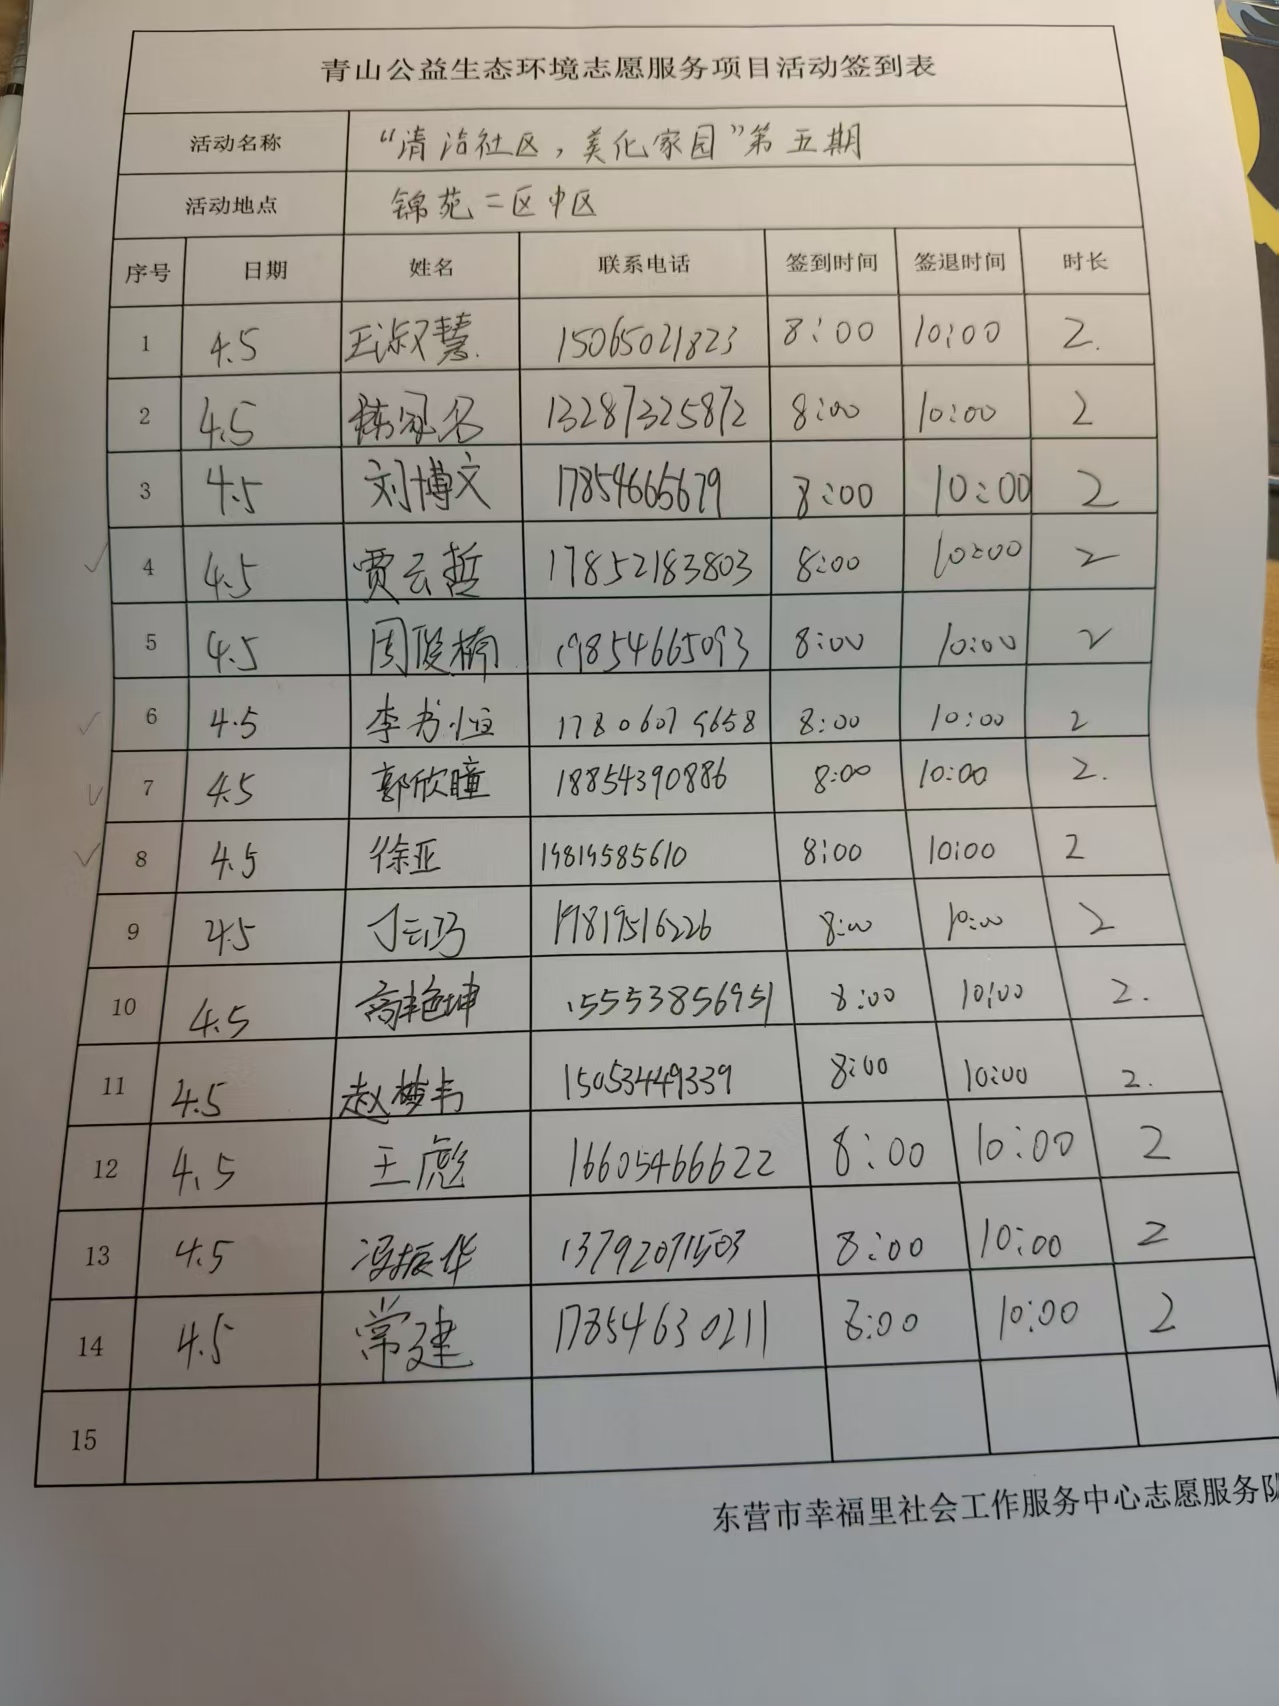 青山公益生态环境志愿服务项目活动签到表
活动名称 “清洁社区，美化家园”第五期
活动地点 锦苑二区中区
序号 日期 姓名 联系电话 签到时间 签退时间 时长
1 4.5 王淑慧 15065021823 8:00 10:00 2.
2 4.5 13287325872 8:00 10:00 2
3 4.5 刘博文 17854665679 8:00 10:00 2
4 4.5 贾云哲 17852183803 8:00 10:00 2
5 4.5 周俊楠 19854665093 8:00 10:00 2
6 4.5 李书恒 17806079658 8:00 10:00 2
7 4.5 郭欣瞳 18854390886 8:00 10:00 2.
8 4.5 徐亚 19819585610 8:00 10:00 2
9 4.5 19819516226 8:00 10:00 2
10 4.5 高艳坤 15553856951 8:00 10:00 2.
11 4.5 赵梦韦 15053449339 8:00 10:00 2.
12 4.5 王彪 16605466622 8:00 10:00 2
13 4.5 冯振华 13792071503 8:00 10:00 2
14 4.5 常建 17854630211 8:00 10:00 2
15
东营市幸福里社会工作服务中心志愿服务队